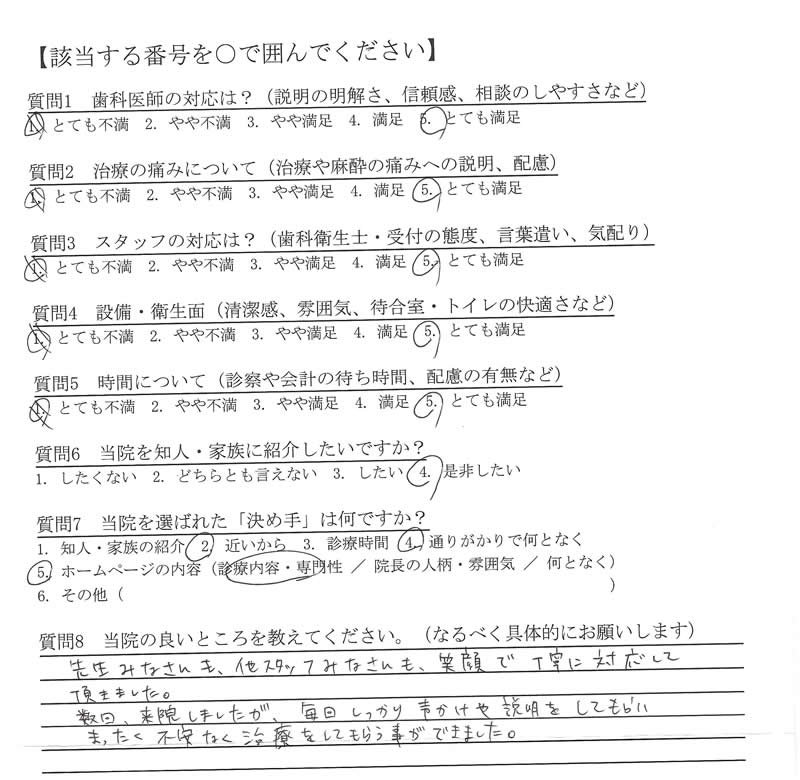 【該当する番号を○で囲んでください】
質問1　歯科医師の対応は？（説明の明解さ、信頼感、相談のしやすさなど）
1. とても不満　2. やや不満　3. やや満足　4. 満足　5. とても満足
質問2　治療の痛みについて（治療や麻酔の痛みへの説明、配慮）
1. とても不満　2. やや不満　3. やや満足　4. 満足　5. とても満足
質問3　スタッフの対応は？（歯科衛生士・受付の態度、言葉遣い、気配り）
1. とても不満　2. やや不満　3. やや満足　4. 満足　5. とても満足
質問4　設備・衛生面（清潔感、雰囲気、待合室・トイレの快適さなど）
1. とても不満　2. やや不満　3. やや満足　4. 満足　5. とても満足
質問5　時間について（診察や会計の待ち時間、配慮の有無など）
1. とても不満　2. やや不満　3. やや満足　4. 満足　5. とても満足
質問6　当院を知人・家族に紹介したいですか？
1. したくない　2. どちらとも言えない　3. したい　4. 是非したい
質問7　当院を選ばれた「決め手」は何ですか？
1. 知人・家族の紹介　2. 近いから　3. 診療時間　4. 通りがかりで何となく
5. ホームページの内容（診療内容・専門性 ／ 院長の人柄・雰囲気 ／ 何となく）
6. その他（　　　　　　　　　　）
質問8　当院の良いところを教えてください。（なるべく具体的にお願いします）
先生みなさんも、他スタッフみなさんも、笑顔で丁寧に対応して
頂きました。
数回、来院しましたが、毎回しっかり声かけや説明をしてもらい
まったく不安なく治療をしてもらう事ができました。